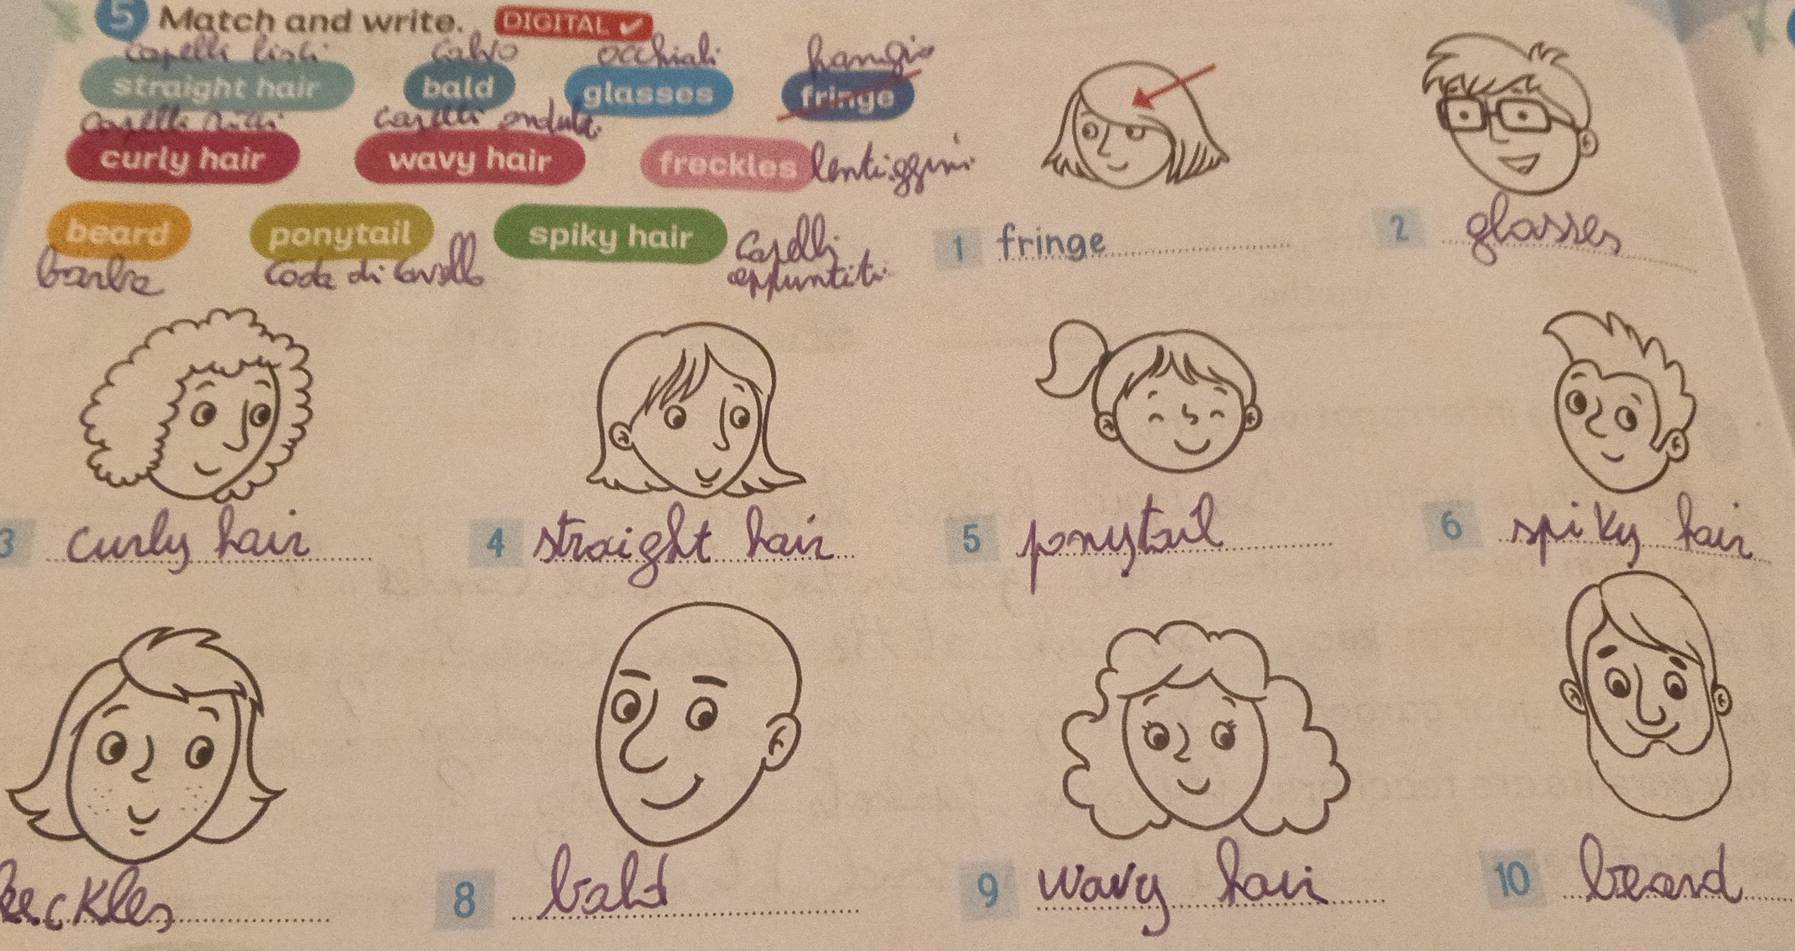 5 Match and write. DIGITAL ✓
capelli lisci calvo occhiali frangia
straight hair bald glasses fringe
capelli ricci capelli ondulati
curly hair wavy hair freckles lentiggini
beard ponytail spiky hair capelli
barba coda di cavallo appuntiti
1 fringe 2 glasses
3 curly hair 4 straight hair 5 ponytail 6 spiky hair
reckles 8 bald 9 wavy hair 10 beard